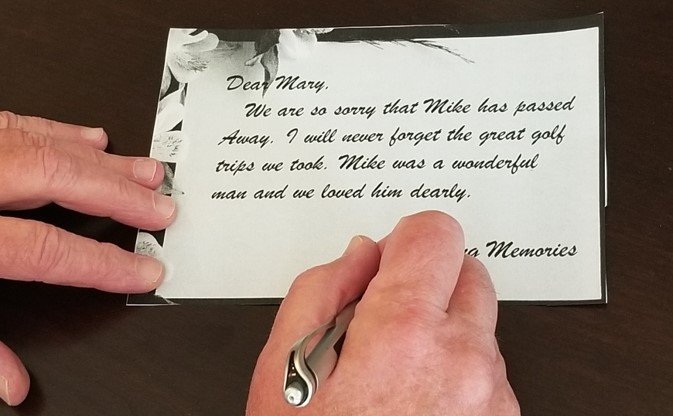 Dear Mary,
We are so sorry that Mike has passed
Away. I will never forget the great golf
trips we took. Mike was a wonderful
man and we loved him dearly.
Memories